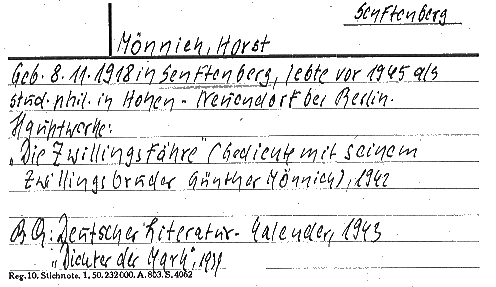 Senftenberg
Mönnich, Horst
Geb. 8.11.1918 in Senftenberg, lebte vor 1945 als
stud. phil. in Hohen-Neuendorf bei Berlin.
Hauptwerke:
„Die Zwillingsfähre“ (Gedichte mit seinem
Zwillingsbruder Günther Mönnich), 1942
BQ: Deutscher Literatur-Kalender, 1943
„Dichter der Mark“, 1939
Reg. 10. Stichnote. 1, 50. 232000. A. 803. S. 4062